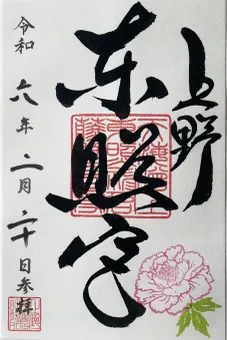 上野
東照宮
令和六年二月二十日参拝